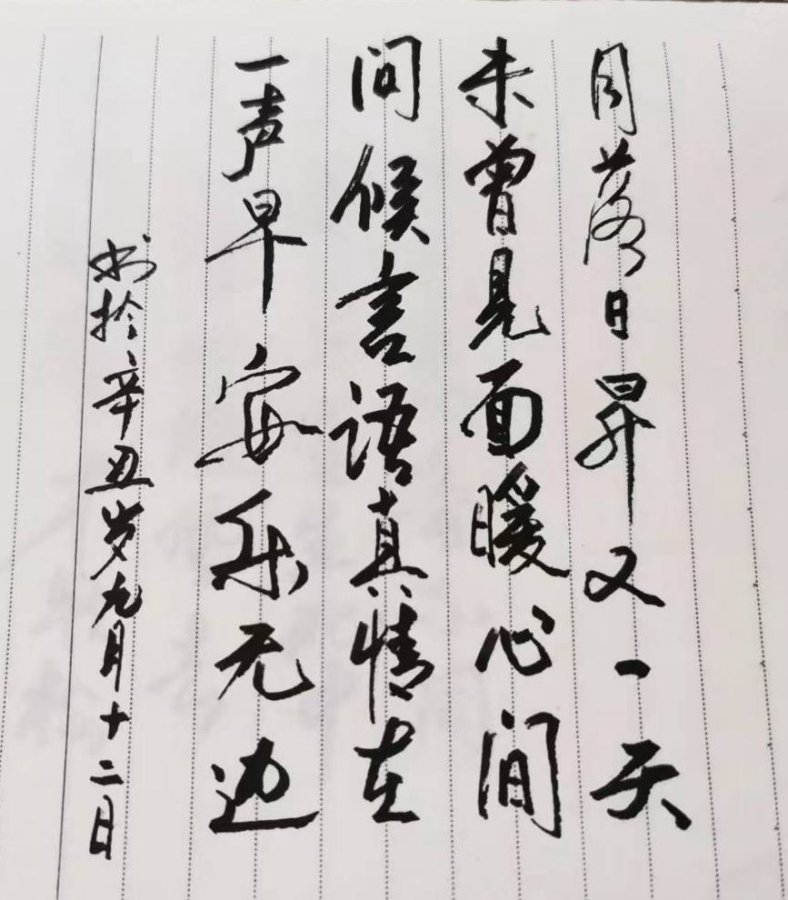 月落日昇又一天
未曾见面暖心间
问候言语真情在
一声早安乐无边
书於辛丑岁九月十二日